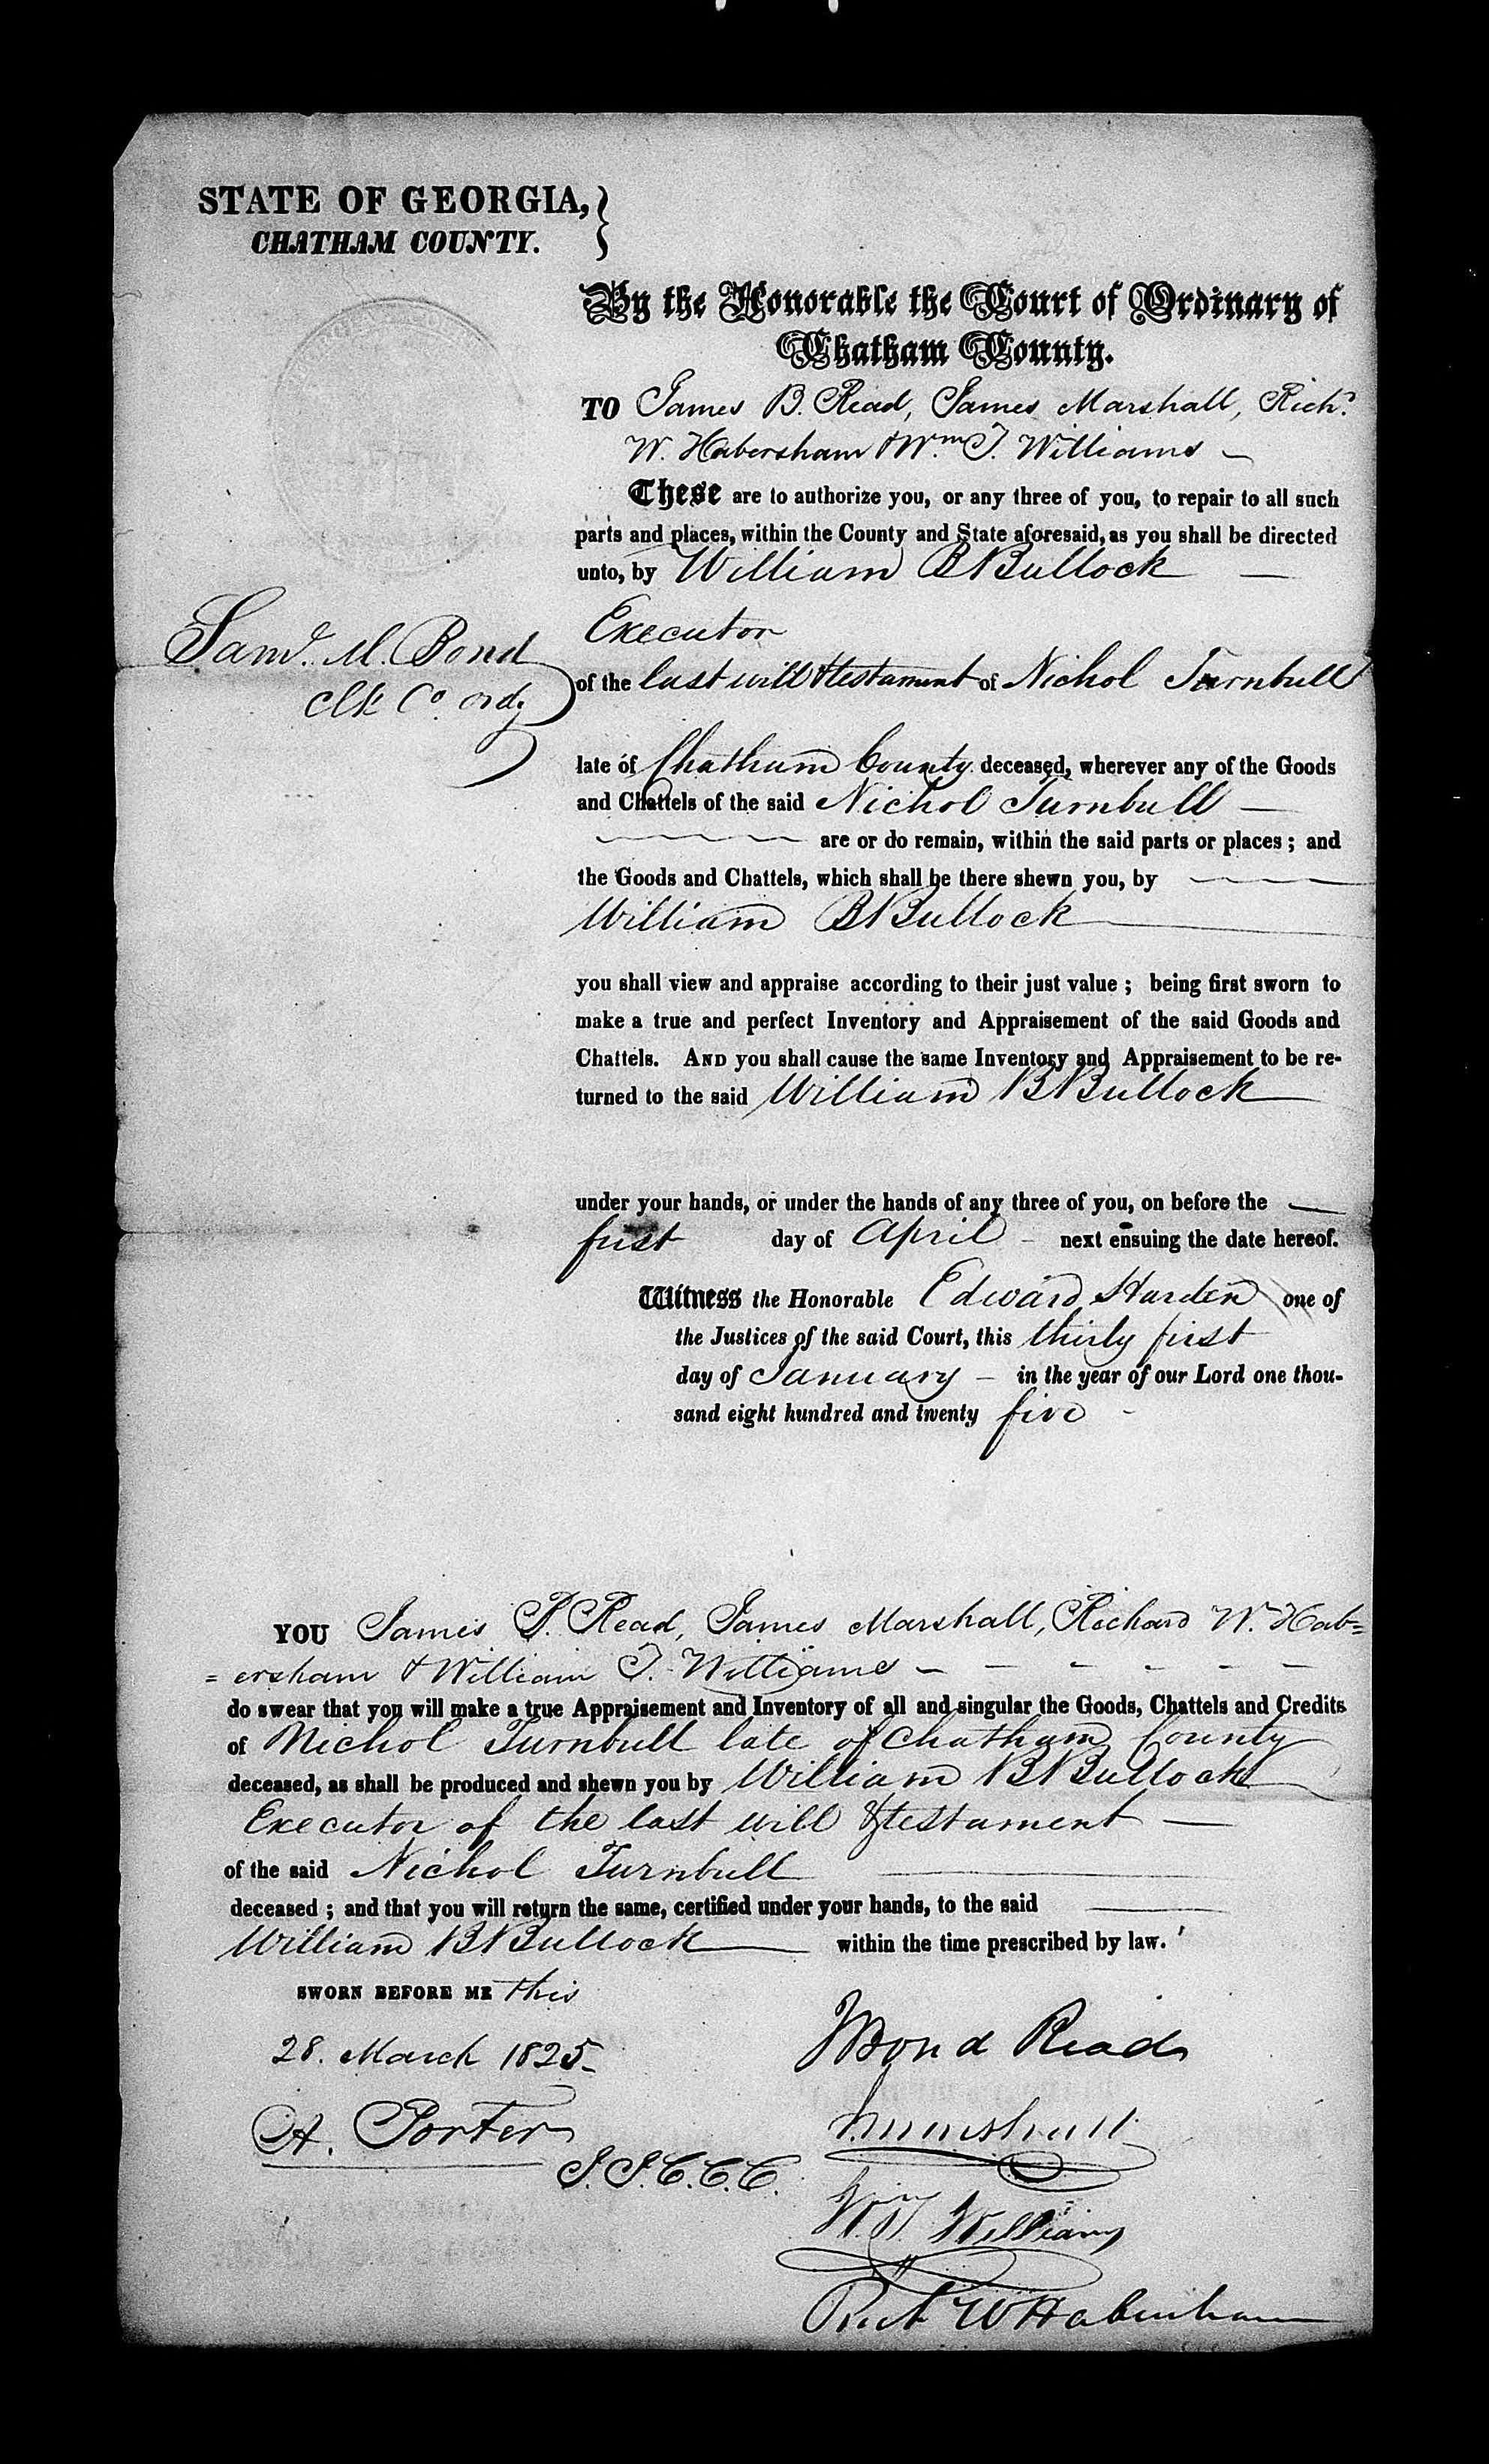 STATE OF GEORGIA,
CHATHAM COUNTY.
By the Honorable the Court of Ordinary of
Chatham County.
TO James B. Read, James Marshall, Richd.
W. Habersham & Wm. T. Williams
These are to authorize you, or any three of you, to repair to all such
parts and places, within the County and State aforesaid, as you shall be directed
unto, by William B Bullock
Executor
Saml. M. Bond
Clk Co ordy
of the last will & testament of Nichol Turnbull
late of Chatham County deceased, wherever any of the Goods
and Chattels of the said Nichol Turnbull
are or do remain, within the said parts or places; and
the Goods and Chattels, which shall be there shewn you, by
William B Bullock
you shall view and appraise according to their just value; being first sworn to
make a true and perfect Inventory and Appraisement of the said Goods and
Chattels. AND you shall cause the same Inventory and Appraisement to be re-
turned to the said William B Bullock
under your hands, or under the hands of any three of you, on before the
first day of April next ensuing the date hereof.
Witness the Honorable Edward Harden one of
the Justices of the said Court, this thirty first
day of January in the year of our Lord one thou-
sand eight hundred and twenty five
YOU James B. Read, James Marshall, Richard W. Hab=
=ersham & William T. Williams
do swear that you will make a true Appraisement and Inventory of all and singular the Goods, Chattels and Credits
of Nichol Turnbull late of Chatham County
deceased, as shall be produced and shewn you by William B Bullock
Executor of the last will & testament
of the said Nichol Turnbull
deceased; and that you will return the same, certified under your hands, to the said
William B Bullock within the time prescribed by law.
SWORN BEFORE ME this
28. March 1825
A. Porter
J.I.C.C.C.
J Bond Read
J. Marshall
Wm T Williams
Rich W Habersham